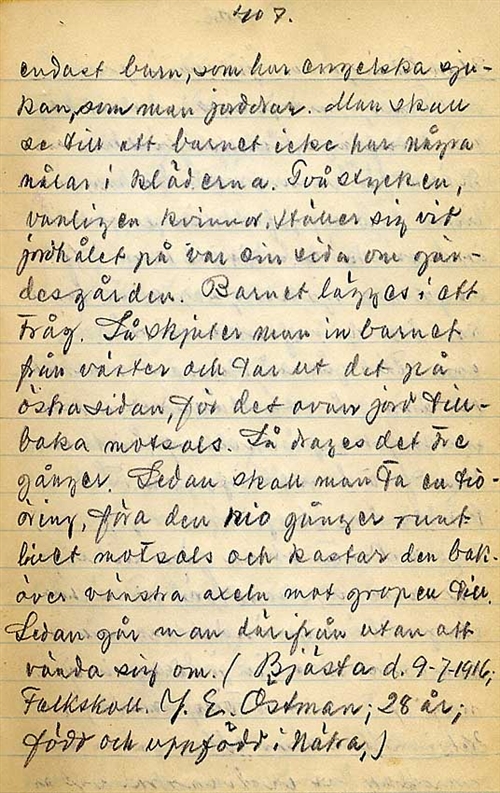 407.
endast barn, som har engelska sju-
kan, som man jorddrar. Man skall
se till att barnet icke har några
nålar i kläderna. Två stycken,
vanligen kvinnor, ställer sig vid
jordhålet på var sin sida om gär-
desgården. Barnet lägges i ett
tråg. Så skjuter man in barnet
från väster och tar ut det på
östra sidan, för det ovan jord till-
baka motsols. Så drages det tre
gånger. Sedan skall man ta en tio-
öring, föra den nio gånger runt
livet motsols och kastar den bak-
över vänstra axeln mot gropen till.
Sedan går man därifrån utan att
vända sig om. (Bjästa d. 9-7-1916;
Folkskoll. J. E. Östman; 28 år;
född och uppfödd i Nätra,)